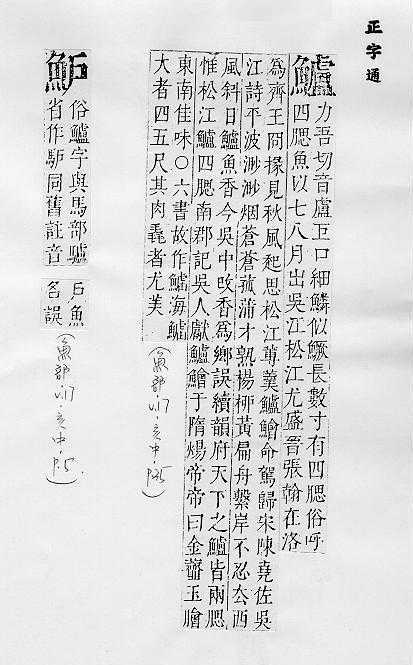 正字通
鱸
力吾切音盧巨口細鱗似鱖長數寸有四腮俗呼
四腮魚以七八月出吳江松江尤盛晉張翰在洛
為齊王冏掾見秋風起思松江蓴羹鱸鱠命駕歸宋陳堯佐吳
江詩平波渺渺烟蒼蒼菰蒲才熟楊柳黃扁舟繫岸不忍去西
風斜日鱸魚香今吳中改香為鄉誤續韻府天下之鱸皆兩腮
惟松江鱸四腮南郡記吳人獻鱸鱠于隋煬帝帝曰金虀玉膾
東南佳味〇六書故作鱸海鱸
大者四五尺其肉毳者尤美
(魚部·v.17·亥中·
魲
俗鱸字與馬部驢
省作馿同舊註音
戶魚
名誤
(魚部·v.17·亥中·P.5.)